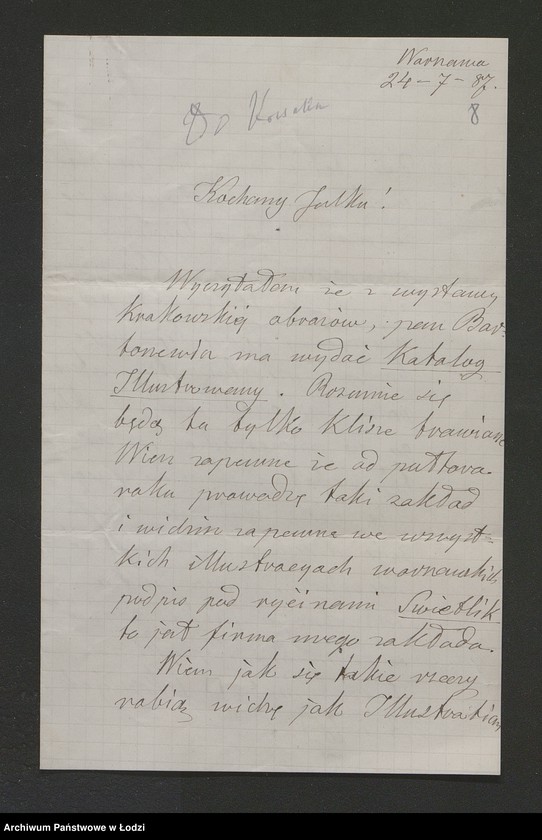 Warszawa
24-7-87.
8
Do Kossaka
Kochany Julku!
Wyczytałem że z wystawy
Krakowskiej obrazów, pan Bar-
toszewicz ma wydać Katalog
Illustrowany. Rozumie się
będą to tylko klisze trawione
Wiesz zapewne że od półtora
roku prowadzę taki zakład
i widzisz zapewne we wszyst-
kich illustracyach warszawskich
podpis pod rycinami Świetlik
to jest firma mego zakładu.
Wiem jak się takie rzeczy
robią widzę jak
Archiwum Państwowe w Łodzi